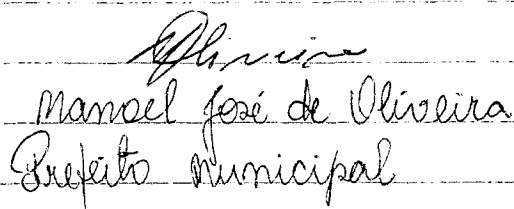 Oliveira
Manoel José de Oliveira
Prefeito Municipal